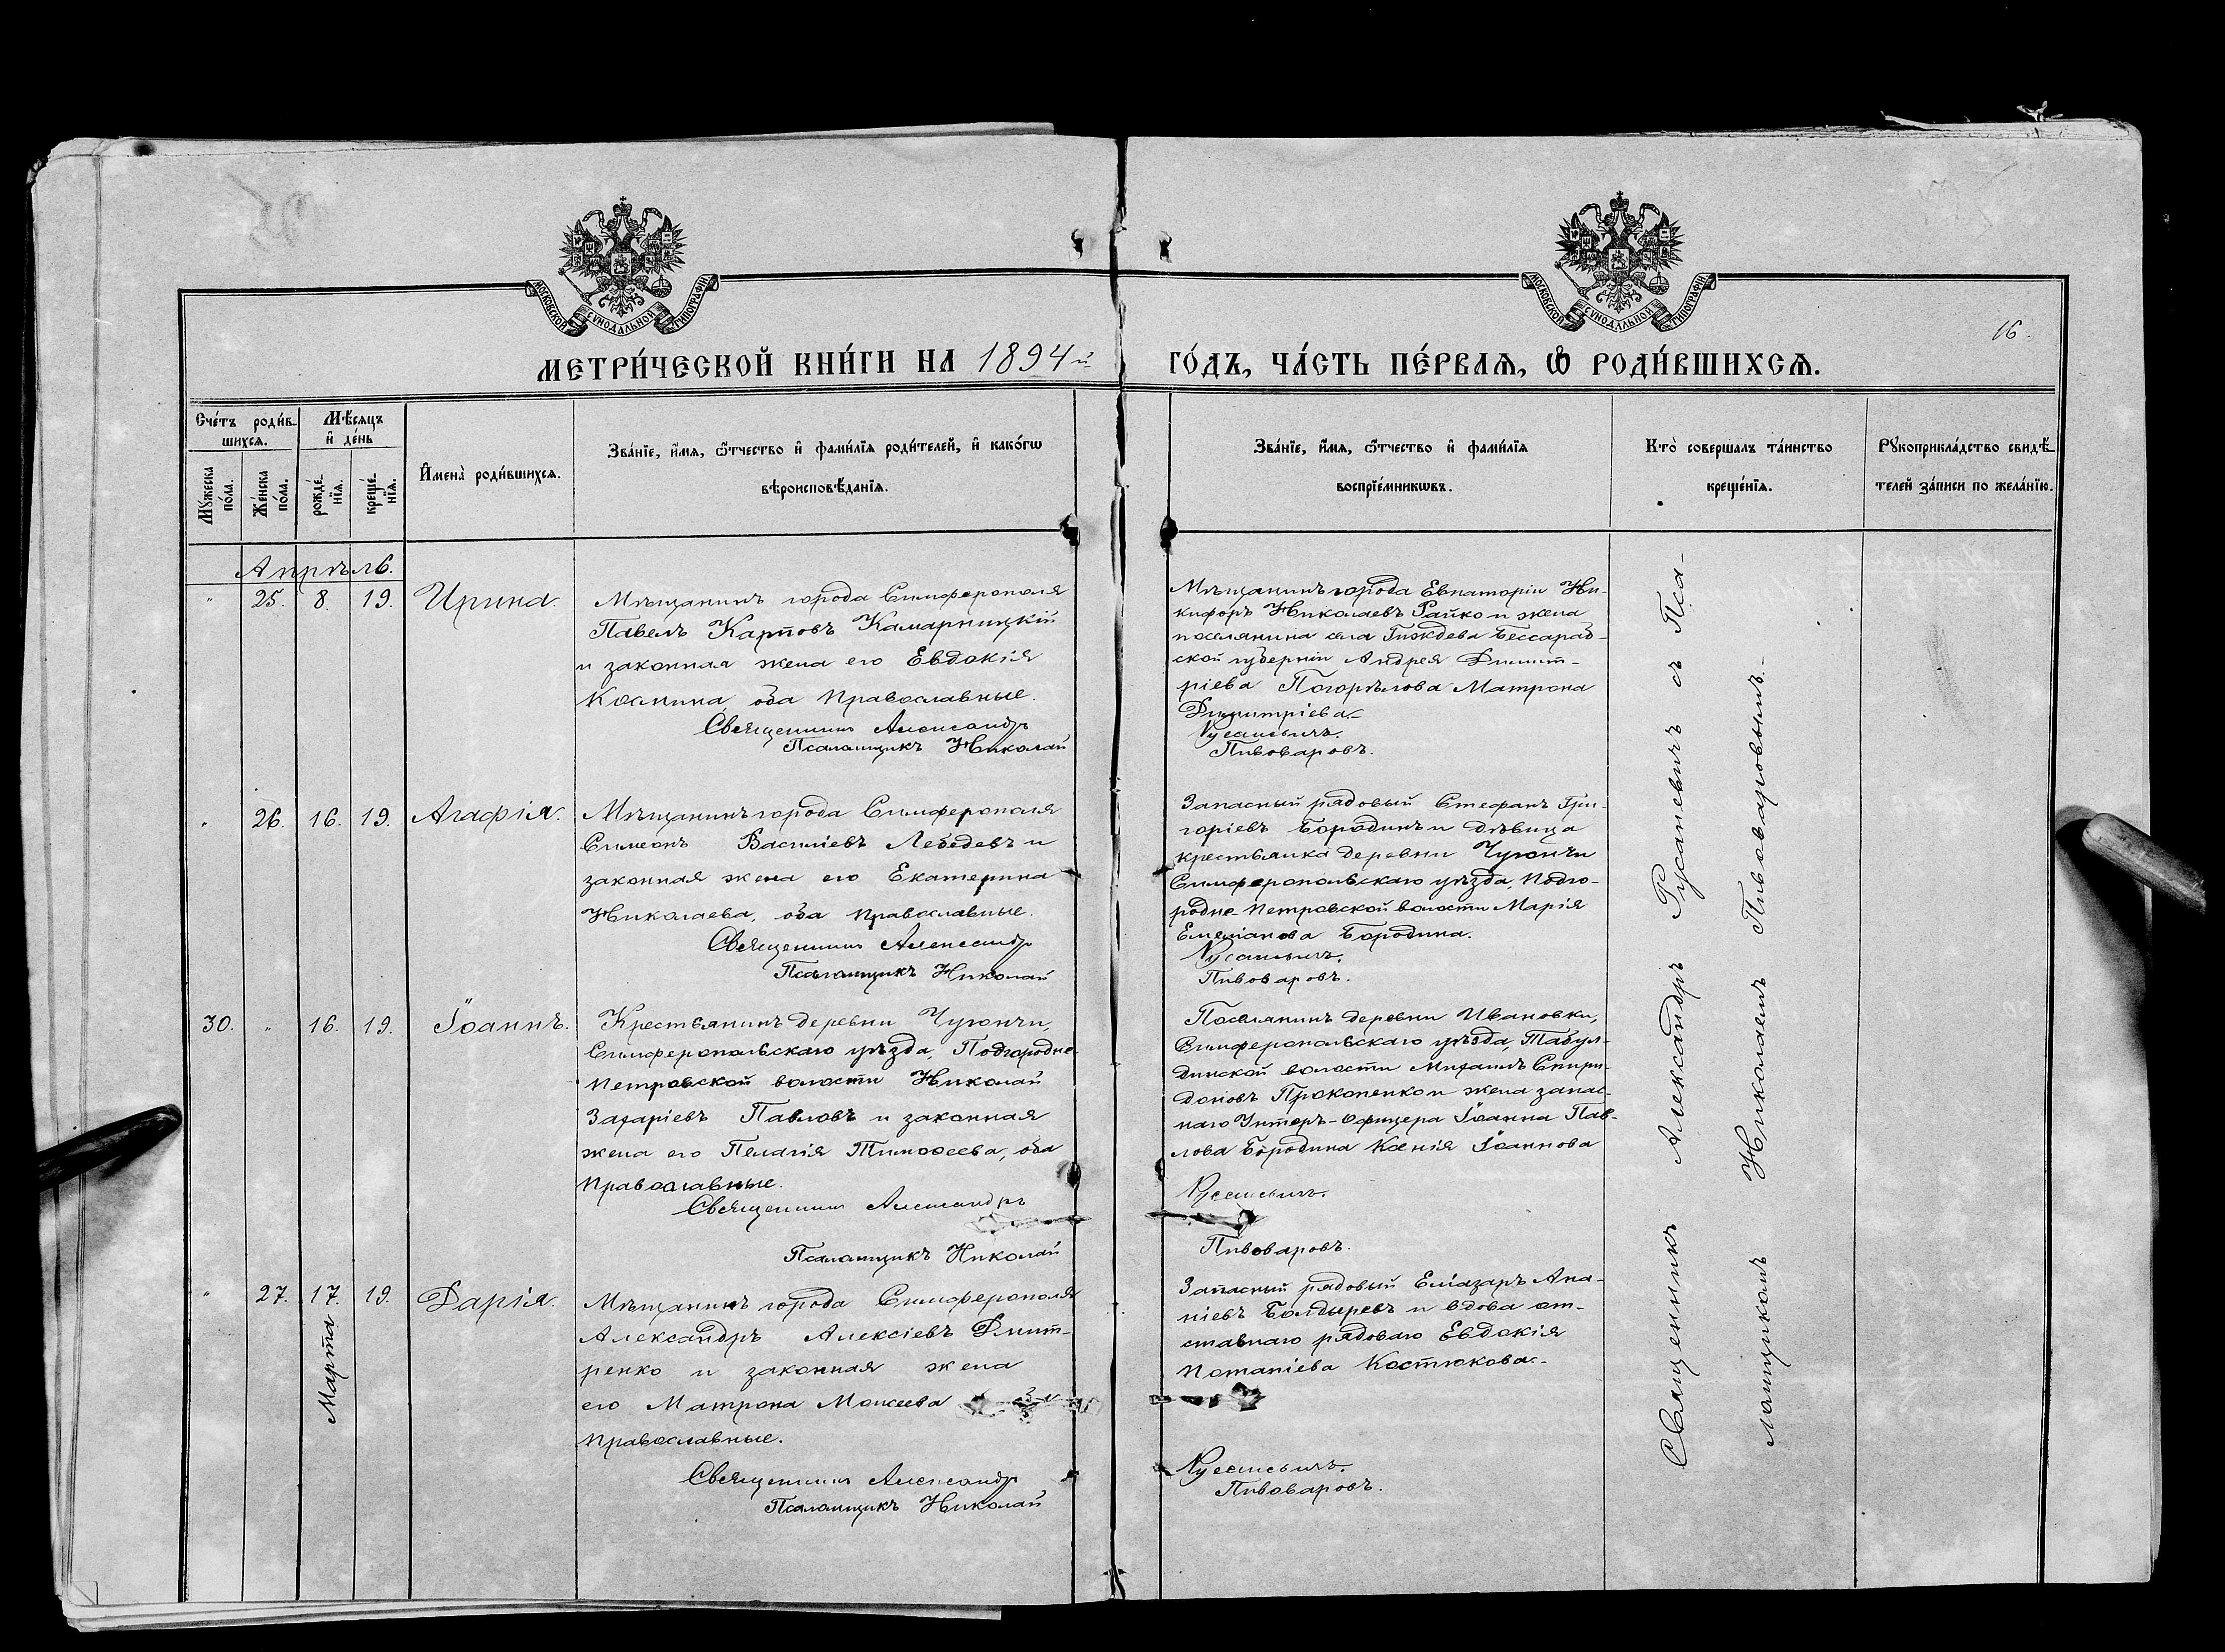 МОСКОВСКОЙ СѴНОДАЛЬНОЙ ТИПОГРАФІИ
МОСКОВСКОЙ СѴНОДАЛЬНОЙ ТИПОГРАФІИ
16.
МЕТРИ́ЧЕСКОЙ КНИ́ГИ НА 1894й ГО́ДЪ, ЧА́СТЬ ПЕ́РВАѦ, Ѡ РОДИ́ВШИХСѦ.
Сче́тъ роди́в-
шихсѧ.
Мꙋ́жеска по́ла.
Же́нска по́ла.
Мѣ́сѧцъ
и҆ де́нь
рожде́нїѧ.
креще́нїѧ.
И҆мена̀ роди́вшихсѧ.
Зва́нїе, и҆́мѧ, ѻ҆́тчество и҆ фами́лїѧ роди́телей, и҆ како́гѡ
вѣроисповѣ́данїѧ.
Зва́нїе, и҆́мѧ, ѻ҆́тчество и҆ фами́лїѧ
воспрїе́мникѡвъ.
Кто̀ соверша́лъ та́инство
креще́нїѧ.
Рꙋкоприкла́дство свидѣ́-
телей за́писи по жела́нїю.
Апрѣль.
" 25. 8. 19. Ирина.
Мѣщанинъ города Симферополя
Павелъ Карповъ Камарницкій
и законная жена его Евдокія
Космина, оба православные.
Священникъ Александръ
Псаломщикъ Николай
Мѣщанинъ города Евпаторіи Ни-
кифоръ Николаевъ Райко и жена
поселянина села Бессараб-
ской губерніи Андрея Димит-
ріева Погорѣлова Матрона
Димитріева
Русаневичъ.
Пивоваровъ.
" 26. 16. 19. Агафія.
Мѣщанинъ города Симферополя
Симеонъ Василіевъ Лебедевъ и
законная жена его Екатерина
Николаева, оба православные.
Священникъ Александръ
Псаломщикъ Николай
Запасный рядовый Стефанъ Гри-
горіевъ Бородинъ и дѣвица
крестьянка деревни Чуюнчи
Симферопольскаго уѣзда, Подго-
родне-Петровской волости Марія
Емеліанова Бородина.
Русаневичъ.
Пивоваровъ.
30. " 16. 19. Іоаннъ.
Крестьянинъ деревни Чуюнчи,
Симферопольскаго уѣзда, Подгородне-
Петровской волости Николай
Захаріевъ Павловъ и законная
жена его Пелагія Тимоѳеева, оба
православные.
Священникъ Александръ
Псаломщикъ Николай
Поселянинъ деревни Ивановки,
Симферопольскаго уѣзда, Табул-
динской волости Михаилъ Спири-
доновъ Прокопенко и жена запас-
наго Унтеръ-Офицера Іоанна Пав-
лова Бородина Ксенія Іоаннова
Русаневичъ.
Пивоваровъ.
" 27. 17. Марта 19. Дарія.
Мѣщанинъ города Симферополя
Александръ Алексіевъ Дмит-
ренко и законная жена
его Матрона Моисеева
православные.
Священникъ Александръ
Псаломщикъ Николай
Запасный рядовый Еліазаръ Ана-
ніевъ Болдыревъ и вдова от-
ставнаго рядоваго Евдокія
Потапіева Костюкова
Русаневичъ.
Пивоваровъ.
Священникъ Александръ Русаневичъ съ Пса-
ломщикомъ Николаемъ Пивоваровымъ.